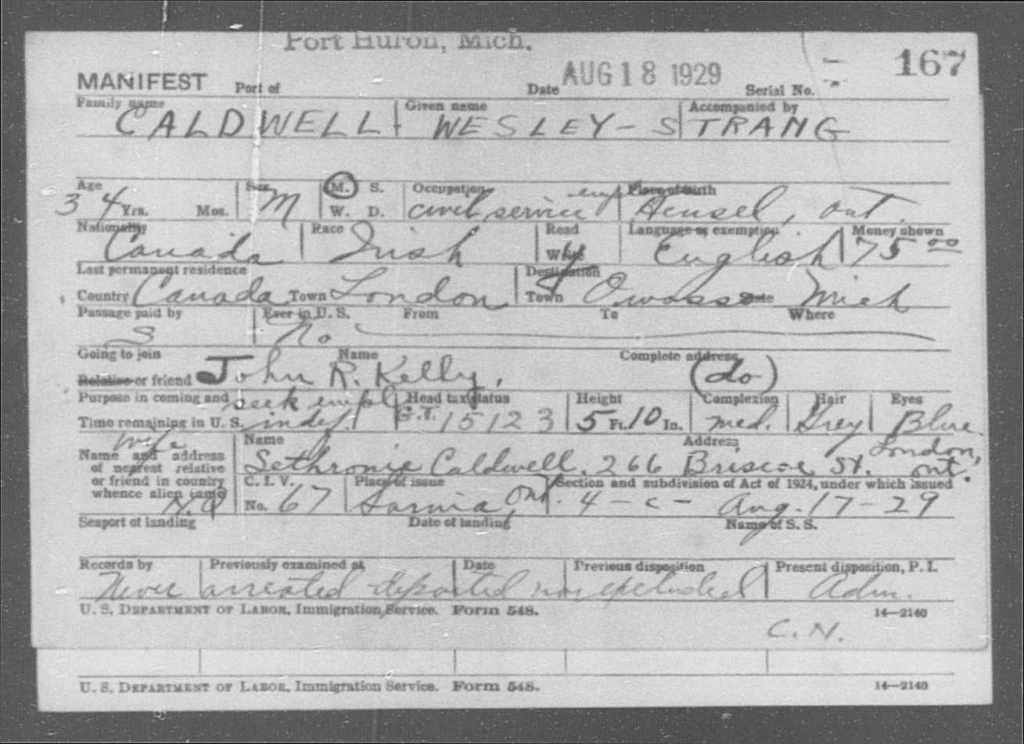 Port Huron, Mich.
MANIFEST Port of Date AUG 18 1929 Serial No. 167
Family name Given name Accompanied by
CALDWELL WESLEY-STRANG
Age Sex M. S. Occupation Place of birth
34 Yrs. Mos. M W. D. civil service empl Hensel, Ont.
Nationality Race Read Language or exemption Money shown
Canada Irish Write English 75 00
Last permanent residence Destination
Country Canada Town London Town Owosso State Mich
Passage paid by Ever in U. S. From To Where
S No
Going to join Name Complete address
Relative or friend John R. Kelly, (do)
Purpose in coming and seek empl Head tax status Height Complexion Hair Eyes
Time remaining in U. S. indef. G.T. 15123 5 Ft. 10 In. med. Grey Blue
wife Name Address London,
Name and address of nearest relative or friend in country whence alien came Caldwell, 266 Briscoe St. Ont.
C. I. V. Place of issue Section and subdivision of Act of 1924, under which issued
No. 67 Sarnia, Ont. 4-c- Aug-17-29
Seaport of landing Date of landing Name of S. S.
Records by Previously examined at Date Previous disposition Present disposition, P. I.
Never arrested deported nor excluded Adm.
U. S. DEPARTMENT OF LABOR, Immigration Service. Form 548. 14-2140
C. N.
U. S. DEPARTMENT OF LABOR, Immigration Service. Form 548. 14-2140